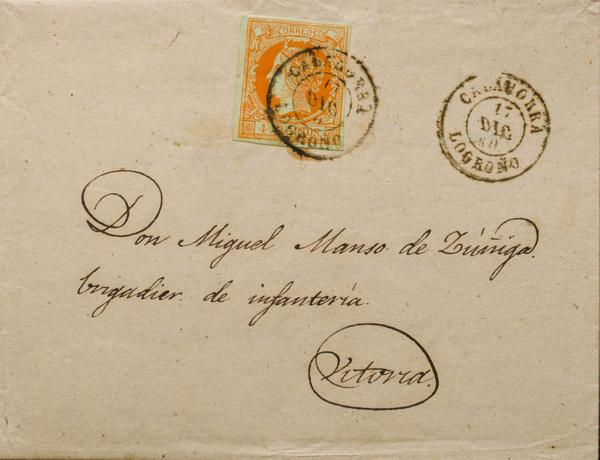 CORREOS
CALAHORRA
17
DIC
LOGROÑO
CALAHORRA
17
DIC
60
LOGROÑO
Don Miguel Manso de Zúñiga.
brigadier de infantería.
Vitoria.